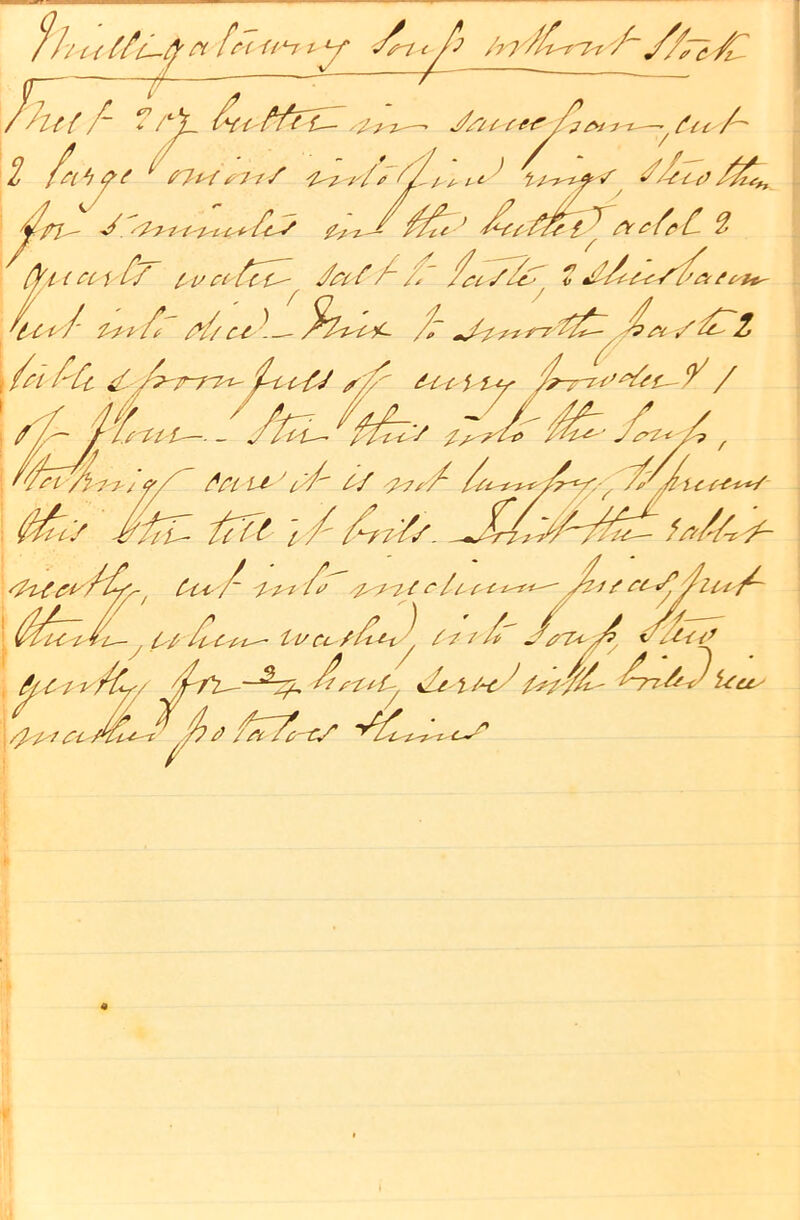 Mulligatawny Soup without Stock
Melt 2 oz butter in saucepan, cut
2 large onions into fine rings, stew them
for 5 minutes in the butter, add 2
quarts water, salt to taste, 2 slices bacon
cut into dice. - Mix to smooth paste 2
table spoonfuls of curry powder & 1
of flour. - Stir this into the Soup,
taking care it is not lumpy, to prevent
this stir till it boils. Joint the rabbit
neatly, cut into medium pieces, put
them, when washed, into soup, Stew
gently for 3/4 hour, serve with boiled rice
mashed potatoes & limes